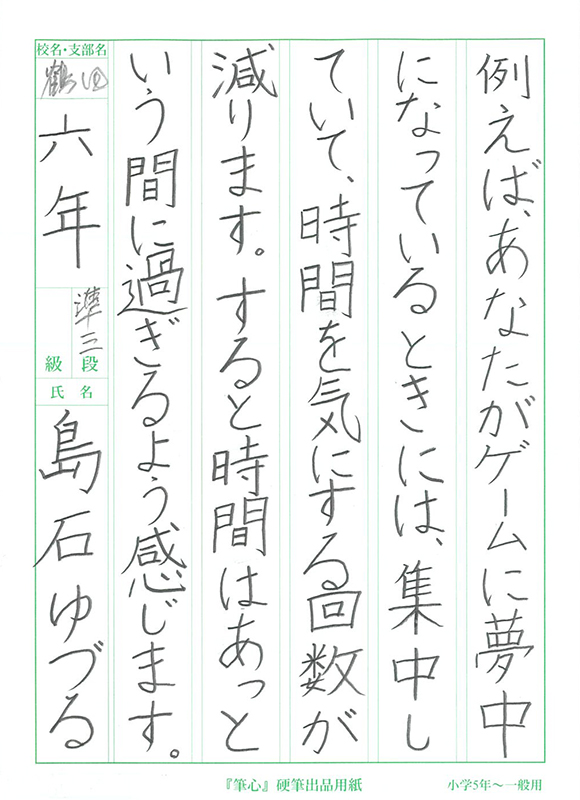 例えば、あなたがゲームに夢中
になっているときには、集中し
ていて、時間を気にする回数が
減ります。すると時間はあっと
いう間に過ぎるよう感じます。
校名・支部名
鶴ゆ
六年
準三
級 段
氏名
島石ゆづる
『筆心』硬筆出品用紙
小学5年～一般用